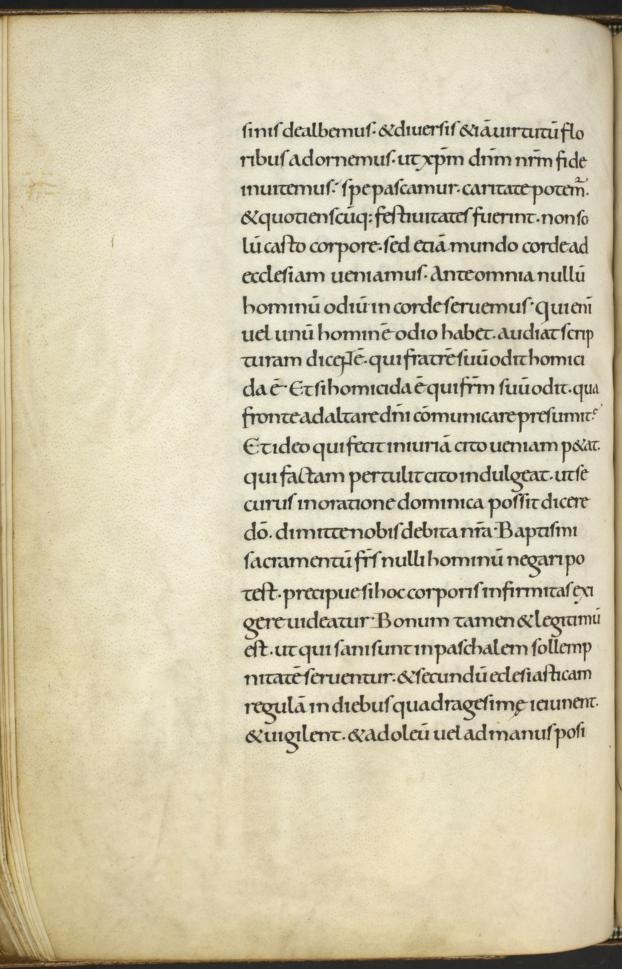 sinis dealbemus· & diuersis &iā uirtutū flo
ribus adornemus· ut xp̄m dn̄m nr̄m fide
inuitemus· spe pascamur· caritate potem̄·
& quotienscūq; festiuitates fuerint· non so
lū casto corpore· sed etiā mundo corde ad
ecclesiam ueniamus· Ante omnia nullū
hominū odiū in corde seruemus· qui eni͞
uel unū hominē odio habet· audiat scrip
turam dicentē· qui fratrē suū odit homici
da ē· Et si homicida ē qui fr̄m suū odit· qua
fronte ad altare dn̄i cōmunicare presumit·
Et ideo qui fecit iniuriā cito ueniam p&at·
qui factam pertulit cito indulgeat· ut se
curus in oratione dominica possit dicere
dō· dimitte nobis debita nr̄a· Baptismi
sacramentū fr̄s nulli hominū negari po
test· precipue si hoc corporis infirmitas exi
gere uideatur· Bonum tamen & legitimū
est· ut qui sani sunt in paschalem sollemp
nitatē seruentur· & secundū ecclesiasticam
regulā in diebus quadragesimę ieiunent·
& uigilent· & ad oleū uel ad manus posi